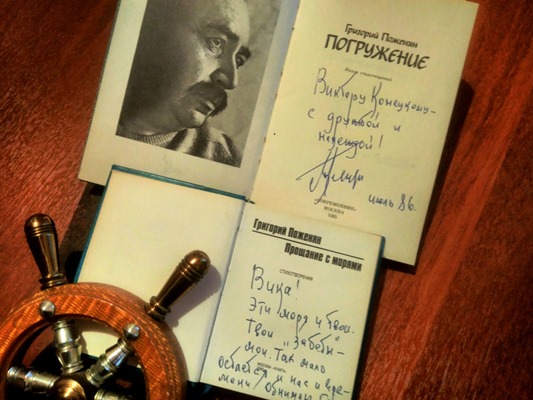 Григорий Поженян
ПОГРУЖЕНИЕ
Книга стихотворений
Виктору Конецкому –
с дружбой и
надеждой!
июль 86.
"СОВРЕМЕННИК"
МОСКВА
Григорий Поженян
Прощание с морями
СТИХОТВОРЕНИЯ
Вика!
Эти моря и твои.
Твои "Заботы" –
мои. Так мало
остается и нас и вре-
мени Обнимаю